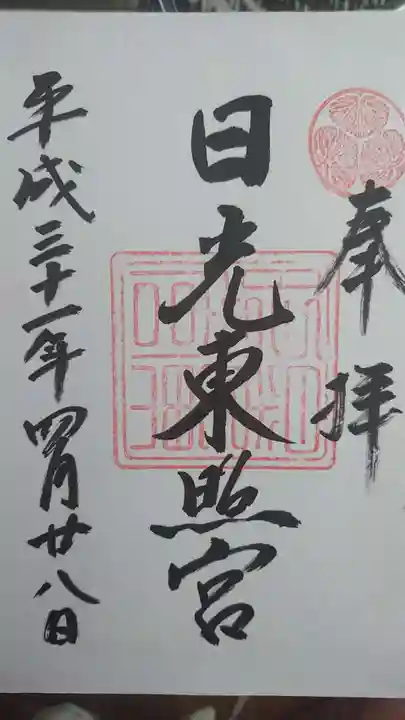 奉拝
日光東照宮
平成三十一年四月廿八日